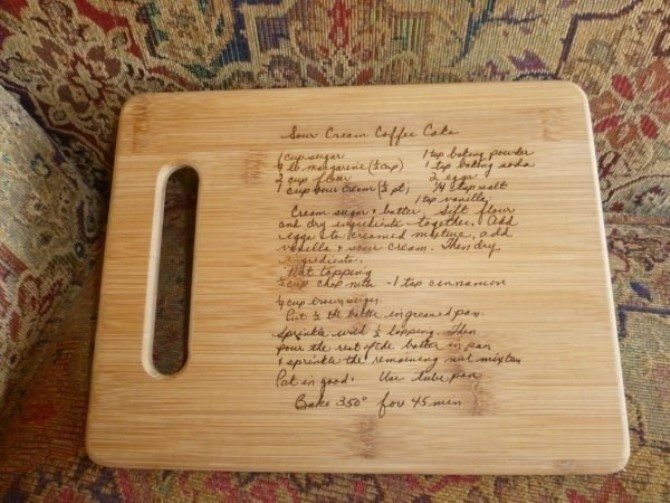 Sour Cream Coffee Cake
1 cup sugar 1 tsp baking powder
lb margarine (½ cup) 1 tsp baking soda
2 cup flour 2 eggs
1 cup sour cream (½ pt) ¼ tsp salt
1 tsp vanilla
Cream sugar + butter Sift flour
and dry ingredients together. Add
eggs to creamed mixture, add
vanilla + sour cream. Then dry
ingredients.
Nut topping
cup chop nuts - 1 tsp cinnamon
cup brown sugar.
Put ½ the batter in greased pan.
Sprinkle with ½ topping. Then
pour the rest of the batter in pan
+ sprinkle the remaining nut mixture
Pat in good. Use tube pan
Bake 350° for 45 min